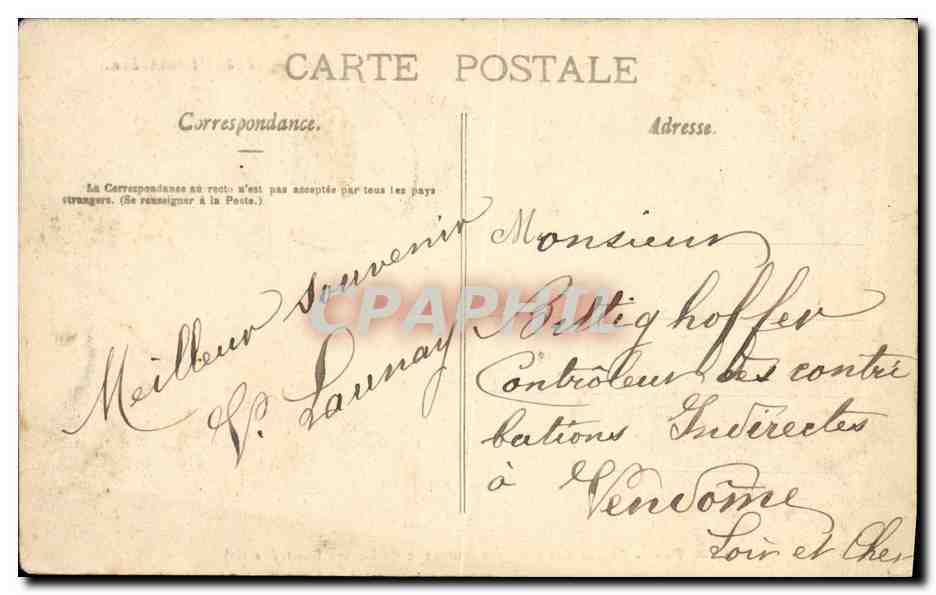 CARTE POSTALE
Correspondance.
Adresse.
La Correspondance au recto n'est pas acceptée par tous les pays
étrangers. (Se renseigner à la Poste.)
Meilleur souvenir
Launay
Monsieur
Bittighoffer
Contrôleur des contri
butions Indirectes
à Vendôme
Loir et Cher
CPAPHIL